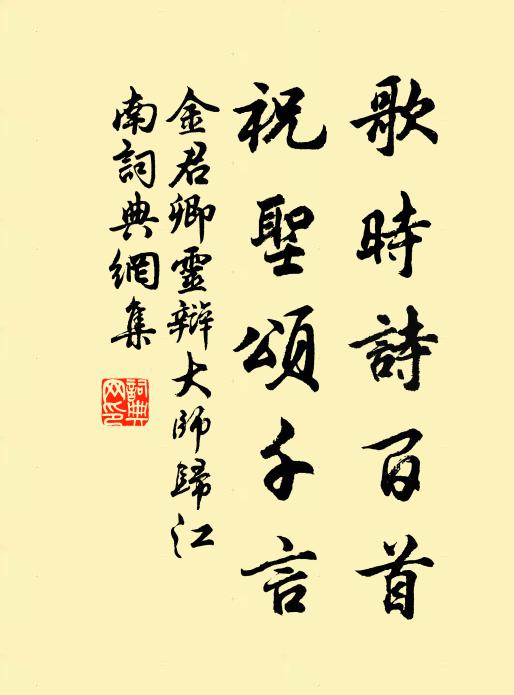 歌時詩百首
祝聖頌千言
金君卿靈辯大師歸江
南詞典網集
詞典
网印